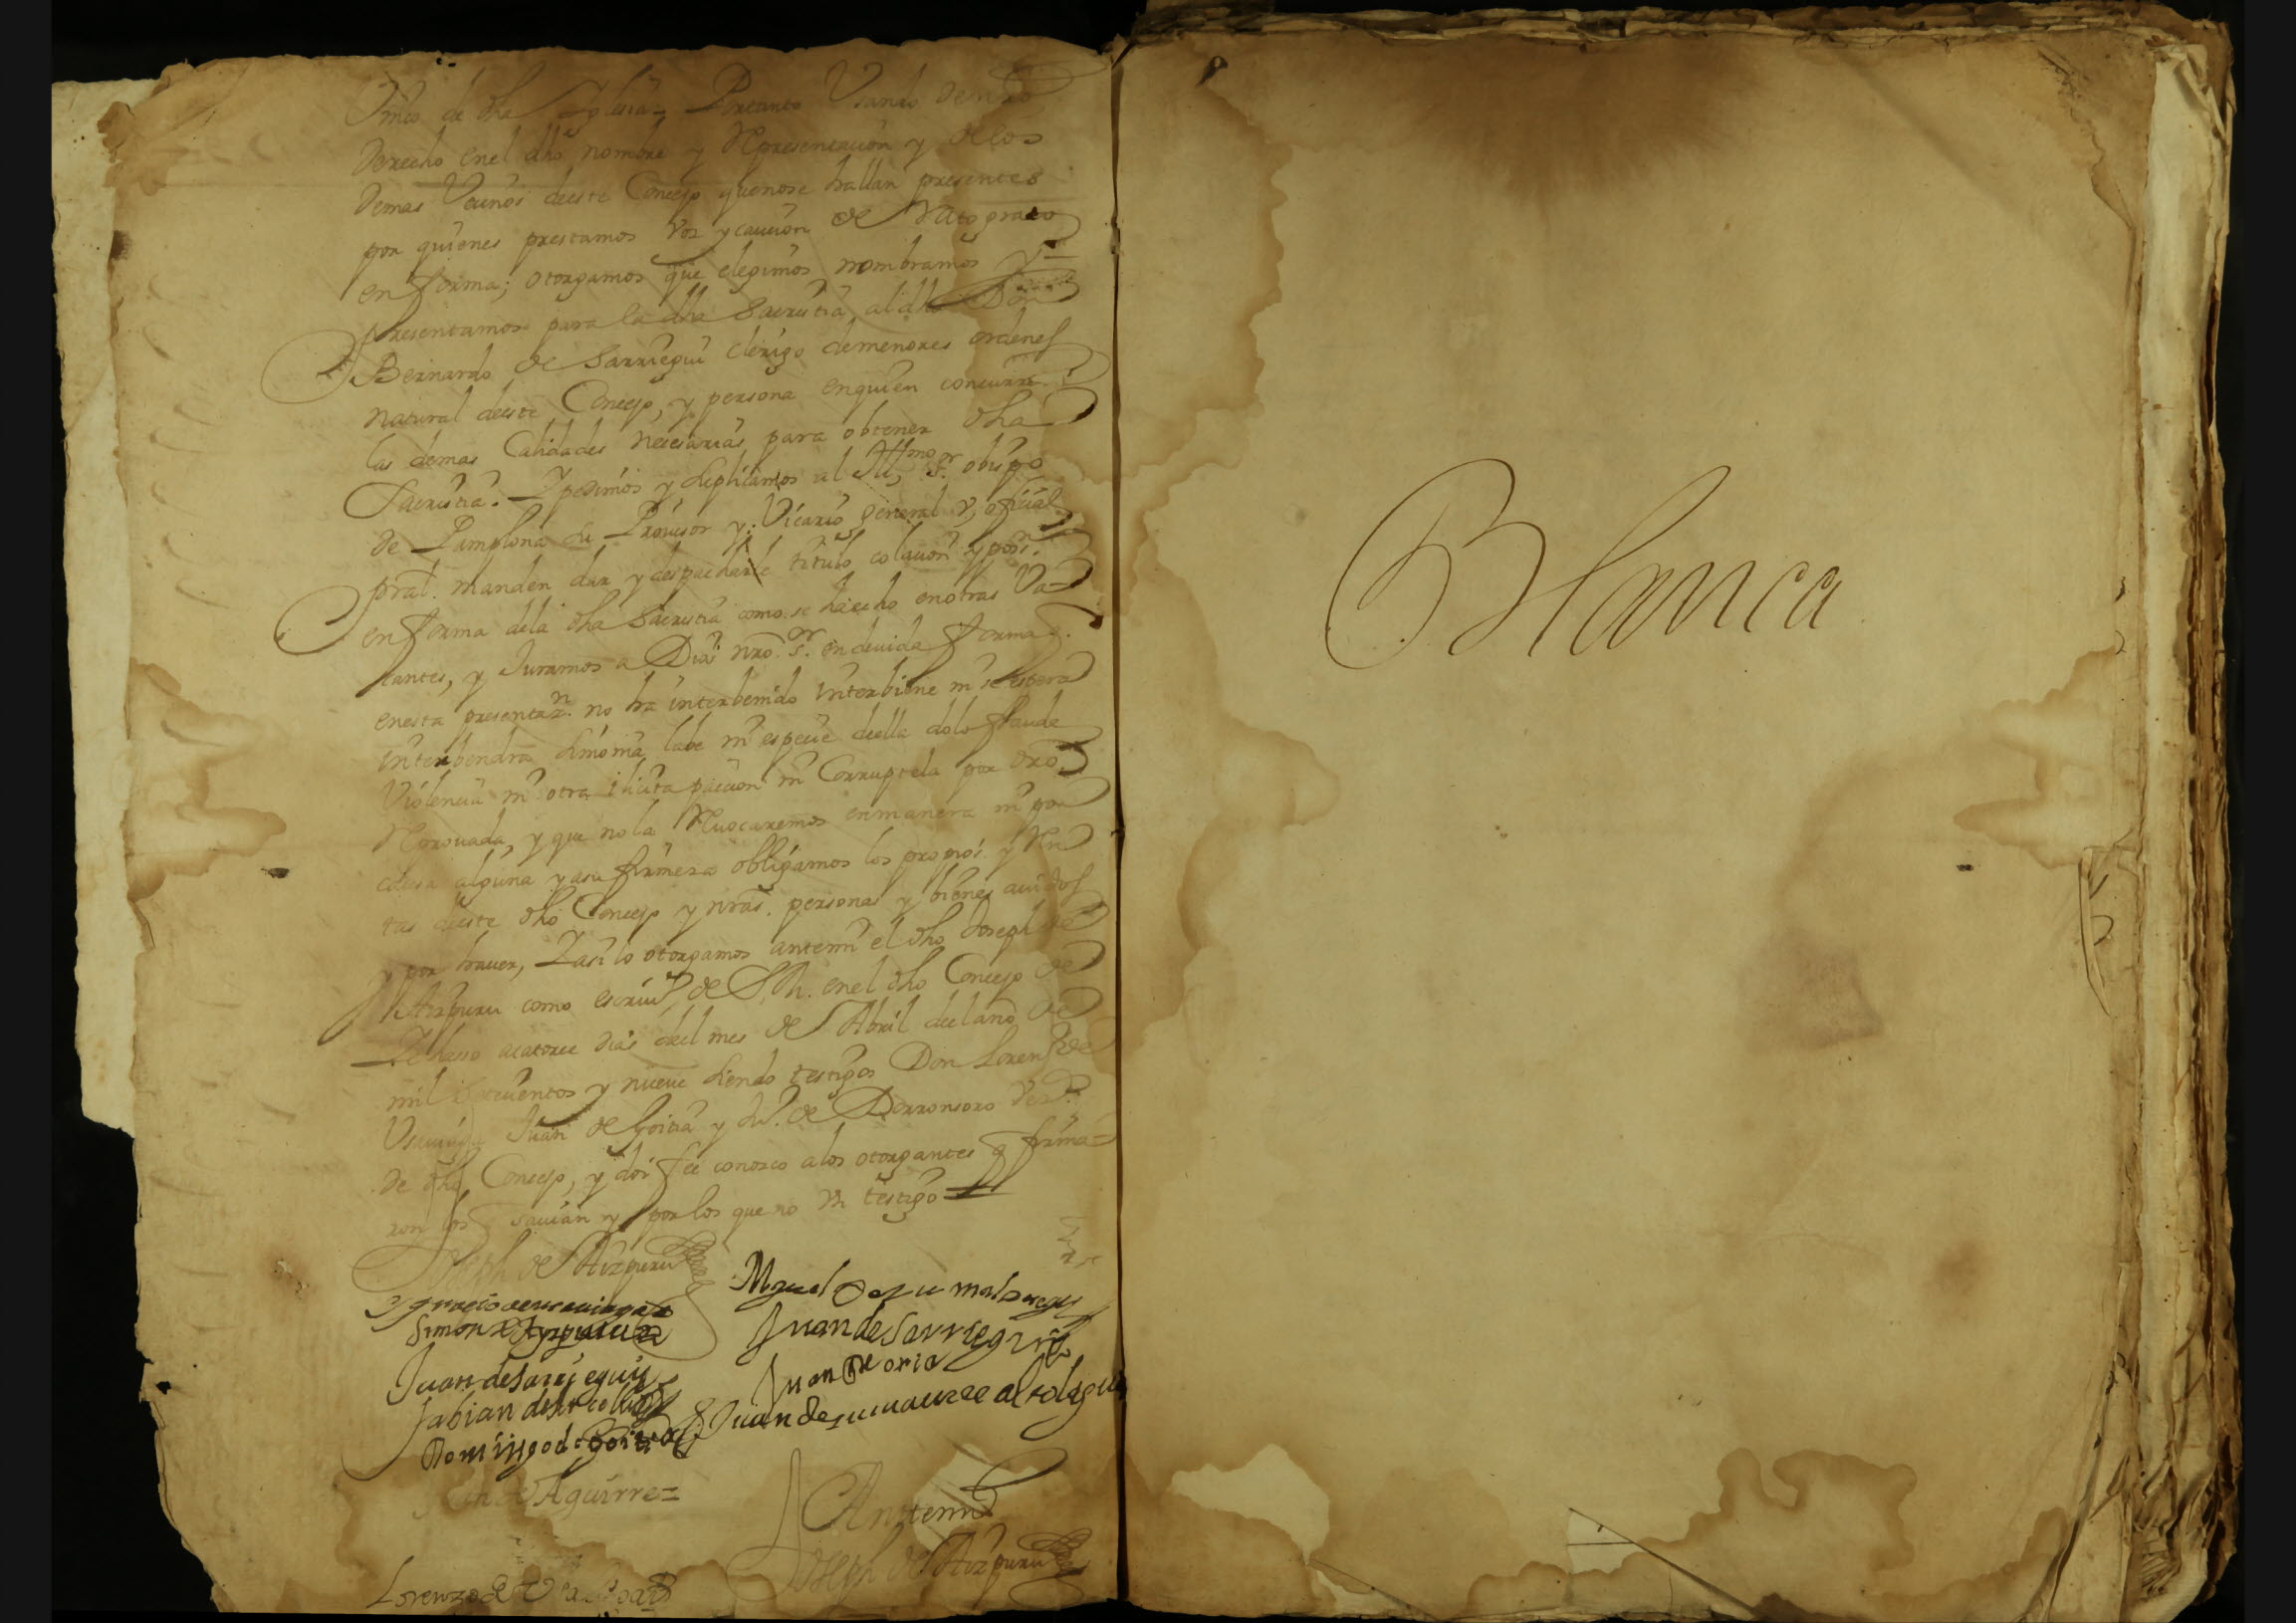 de dha Iglesia, Portanto Usando de nro
derecho enel dho nombre y Representacion y de los
demas Vecinos deeste Concejo quenose hallan presentes
por quienes prestamos voz y caucion de Rato grato
en forma; otorgamos que elegimos nombramos y
presentamos para la dha Sacristia, al dho Don
Bernardo de Sarriegui Clerigo demenores ordenes
natural deeste Concejo, y persona enquien concurren
las demas Calidades necesarias para obtener dha
Sacristia. Y pedimos y suplicamos al Illmo Sr. obispo
de Pamplona su Provisor y Vicario general y oficial
pral. manden dar y despacharle titulo colacion y posn.
en forma dela dha Sacristia como se ha echo enotras Va-
cantes, y Juramos a Dios nro. Sr. en devida forma q.
enesta presentazn. no ha interbenido interbiene ni se espera
interbendra simonia labe ni especie deella dolo fraude
Violencia ni otra ilicita paccion ni Corruptela por dro
Reprovada, y que nola Revocaremos enmanera ni por
causa alguna y asu firmeza obligamos los propios y Ren
tas deeste dho Concejo y nras. personas y bienes avidos
y por haver, Y asi lo otorgamos antemi el dho Joseph de
Aizpuru como escrivo. de S.M. enel dho Concejo de
acatorce dias del mes de Abril deel año de
mil setecientos y nueve siendo testigos Don Lorenzo de
Juan de Goitia y de Berronsoro vezs.
de dho Concejo, y doi fee conozco alos otorgantes q firma-
ron los q savian y por los que no un testigo
Joseph de Aizpuru
Miguel de
Simon de Ayzpuru
Juan de Sarriegui
Juan de Sarriegui
Juan de oria
Fabian de
Juan de
Domingo de Goitia
de Aguirre
Antemi
Joseph de Aizpuru
Lorenzo de
Blanca